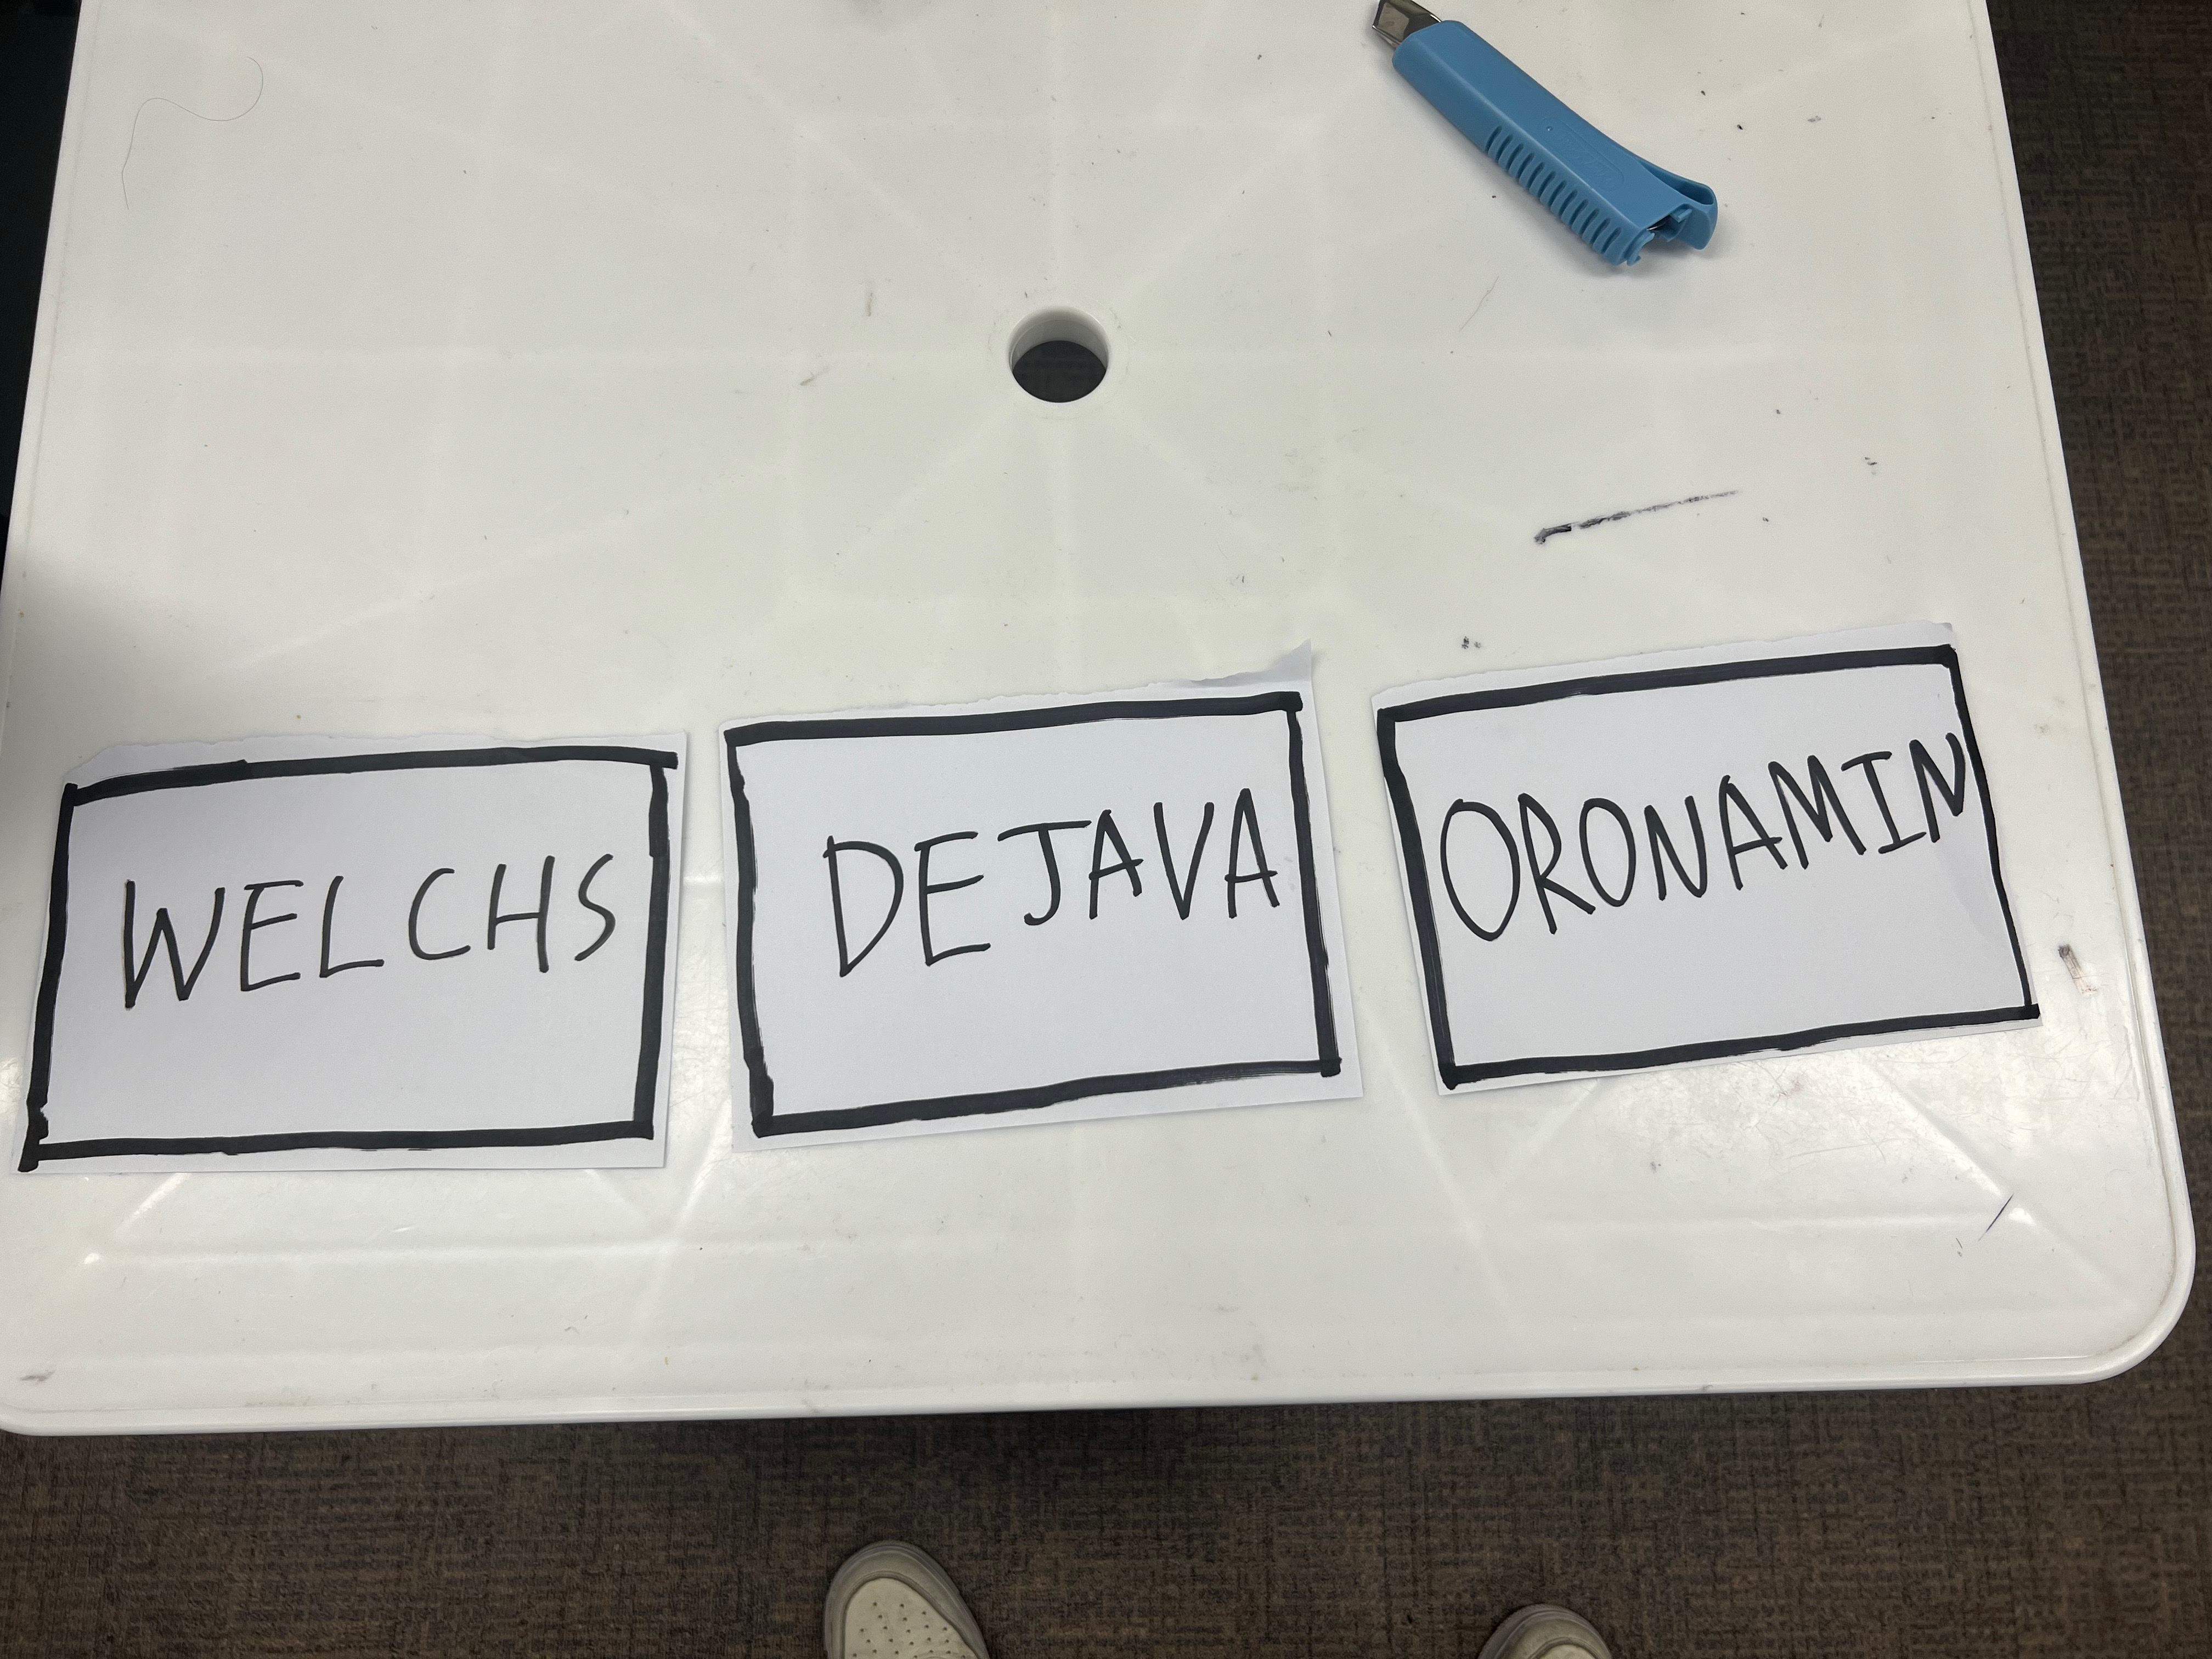 WELCHS
DEJAVA
ORONAMIN